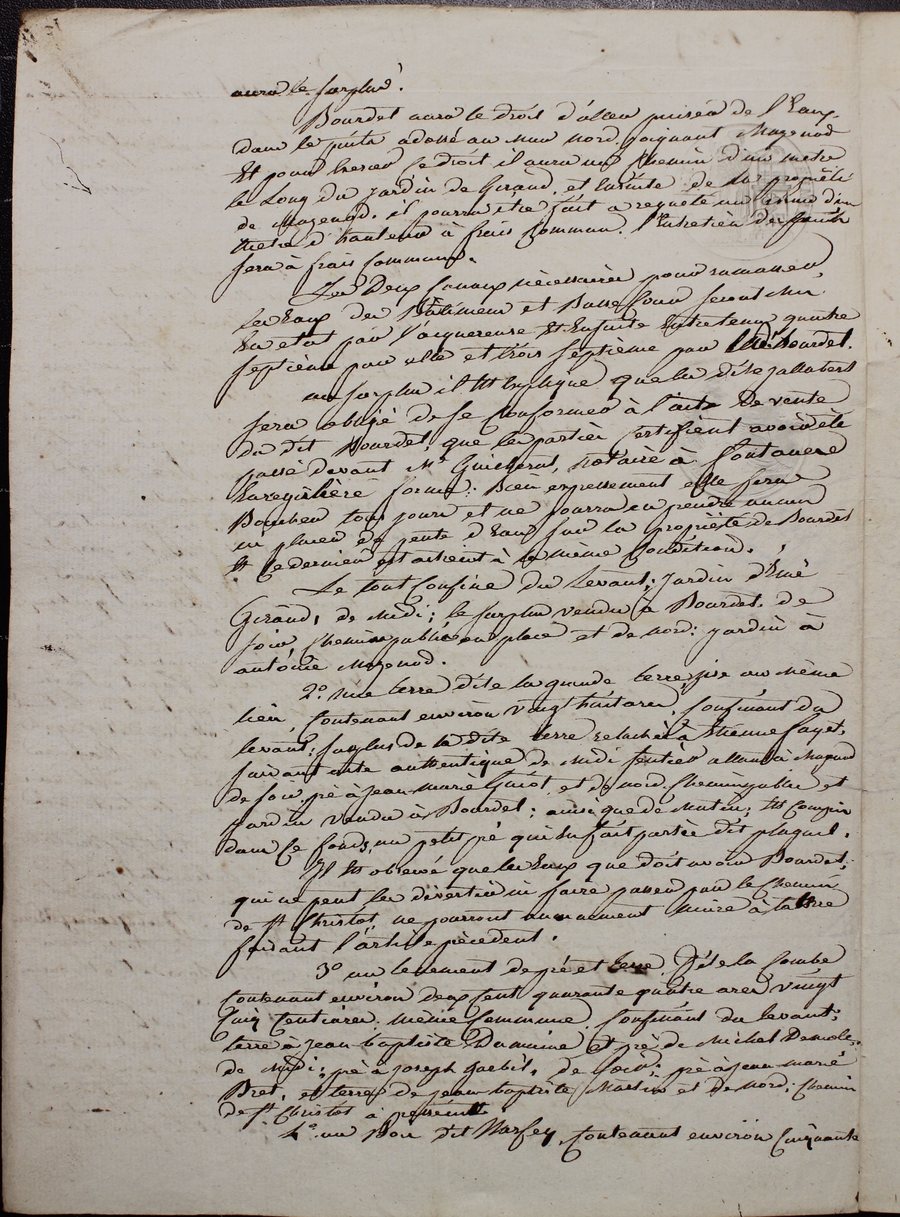 aura le surplus.
Bourdet aura le droit d'aller puiser de l'Eau
dans le puits adossé au mur nord joignant Mazenod
Et pour exercer ce droit il aura un chemin d'un metre
le Long du jardin de Giraud, et ensuite de la propriété
de Mazenod. il pourra être fait a requete un mur d'un
metre d'hauteur à frais Commun. l'Entretien du puits
sera à frais Communs.
Les Deux Canaux nécessaires pour ramasser
les Eaux du Bâtiment et Basse Cour seront mis
En etat par l'acquereuse Et Ensuite Entretenus quatre
septième par elle et trois septième par ledit Bourdet.
au surplus il Est Expliqué que la dite jallabert
sera obligé de se Conformer à l'acte De vente
du dit Bourdet, que les parties Certifient avoir été
passé devant Me notaire à fontanese
Enregistré forme: Bien expressement elle sera
tous jours et ne pourra en prendre aucun
ni placer de pente d'Eaux sur la propriété de Bourdet
Et Ce dernier est astreint à la même Condition.
Le tout Confine du Levant; jardin d'Emé
Giraud, de Midi; le surplus vendu à Bourdet. de
soir, Chemin public ou place et de nord: jardin à
antoine Mazenod.
2o une terre dite la grande terre, sise au même
lieu, Contenant environ vingt huit ares, Confinant du
levant; surplus de la dite terre relaché à Etienne fayet,
suivant acte authentique de Midi sentier allant à
de soir, pré à jean Marie Guiot, et de nord, Chemin public et
jardin vendu à Bourdet; ainsi que de Matin; Est Compris
dans Ce fonds, un petit pré qui En fait partie dit plaquet.
Il Est observé que les Eaux que doit avoir Bourdet;
qui ne peut les divertir ni faire passer par le Chemin
de St Christôt ne pourront aucunement nuire à la terre
faisant l'article précedent.
3o un tenement de pré et terre, Dite la Combe
Contenant environ deux Cent quarante quatre ares vingt
Cinq Centiares, même Commune, Confinant du levant;
terre à jean baptiste Damine et pré de Michel
de Midi, pré à joseph de Soir, pré à jean marie
Bret, et terre de jean Baptiste Martin et De Nord; Chemin
de St Christôt à
4o un Bois dit Marfey, Contenant environ Cinquante